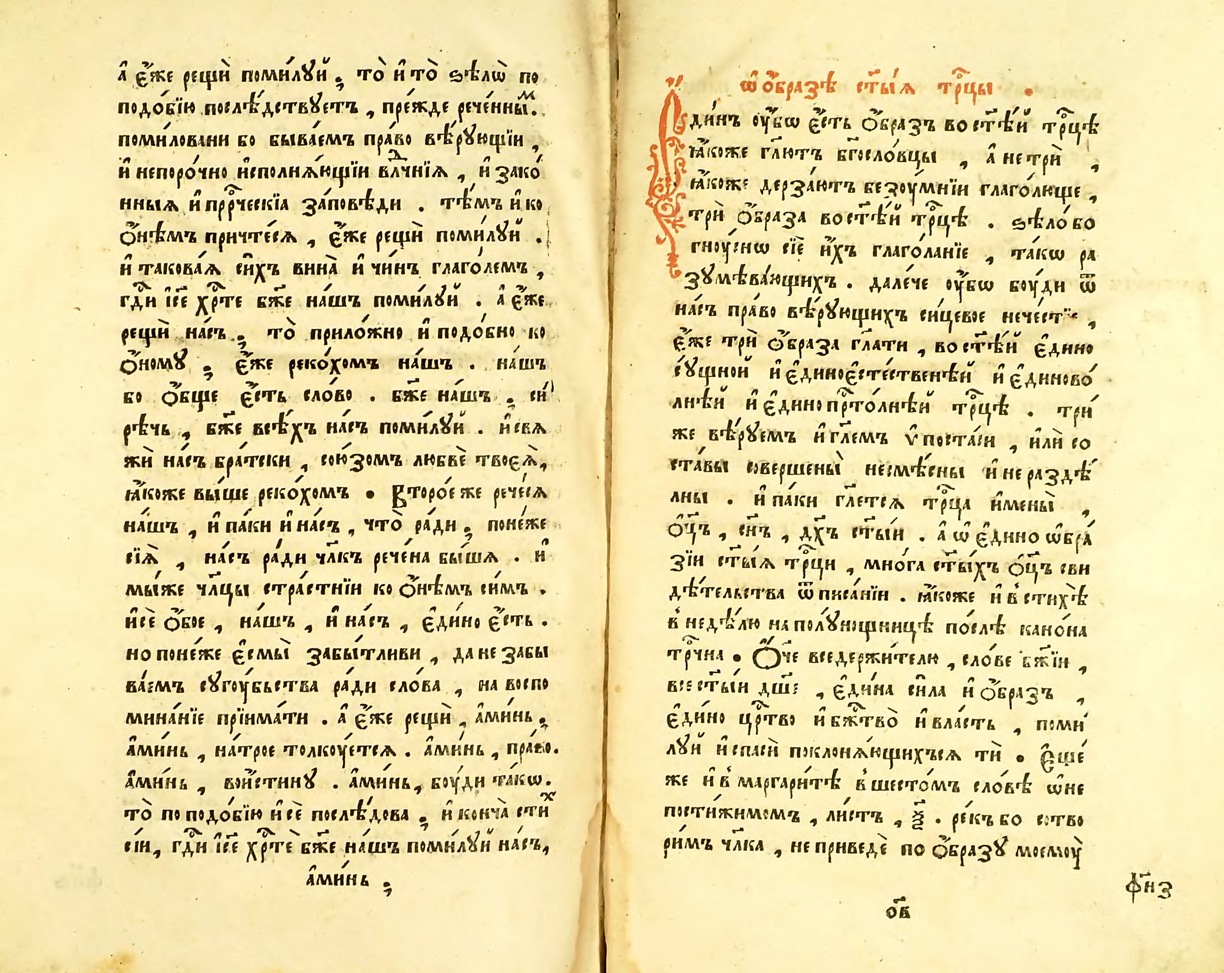 А҆ є҆́же рещѝ поми́лꙋй, то̀ и҆ то̀ ѕѣ́лѡ по
подо́бїю послѣ́дствꙋетъ, пре́жде рече́нныⷨ.
поми́ловани бо быва́емъ пра́во вѣ́рꙋющїи,
и҆ непоро́чно и҆сполнѧ́ющїи влⷣчнїѧ, и҆ зако́
нныѧ и҆ прⷪ҇рческїѧ за́повѣди. тѣ́мъ и҆ ко
ѻ҆нѣ́мъ причте́сѧ, є҆́же рещѝ поми́лꙋй.
и҆ такова́ѧ си́хъ вина̀ и҆ чи́нъ глаго́лемъ,
гдⷭ҇и і҆се хрⷭ҇тѐ бж҃е на́шъ поми́лꙋй. а҆ є҆́же
рещѝ на́съ, то̀ прило́жно и҆ подо́бно ко
ѻ҆́номꙋ, є҆́же реко́хомъ на́шъ. на́шъ
бо ѻ҆́бще є҆́сть сло́во. бж҃е на́шъ, си
рѣ́чь, бж҃е всѣ́хъ на́съ поми́лꙋй. и҆ свѧ
жѝ на́съ бра́тски, сою́зомъ любвѐ твоеѧ̀,
ꙗ҆́коже вы́ше реко́хомъ. Второ́е же рече́сѧ
на́шъ, и҆ па́ки и҆ на́съ, что̀ ра́ди, поне́же
сїѧ̀, на́съ ра́ди чл҃къ рече́на бы́шѧ. и҆
мы́же чл҃цы стра́стнїи ко ѻ҆нѣ́мъ си́мъ.
и҆ сѐ ѻ҆бо́е, на́шъ, и҆ на́съ, є҆ди́но є҆́сть.
но поне́же є҆смы̀ забы́тливи, да не забы
ва́емъ сꙋгоу́бьства ра́ди сло́ва, на воспо
мина́нїе прїима́ти. а҆ є҆́же рещѝ, а҆ми́нь,
а҆ми́нь, на́трое толкоу́етсѧ. а҆ми́нь, пра́во.
а҆ми́нь, вои́стинꙋ. а҆ми́нь, боу́ди та́кѡ.
то̀ по подо́бїю и҆ сѐ послѣ́дова, и҆ конча̀ стиⷯ
сі́и, гдⷭ҇и і҆се хрⷭ҇тѐ бж҃е на́шъ поми́лꙋй на́съ,
а҆ми́нь,
ѡ҆ ѻ҆́бразѣ ст҃ы́ѧ трⷪ҇цы.
Є҆ди́нъ оу҆́бѡ є҆́сть ѻ҆́бразъ во ст҃ѣ́й трⷪ҇цѣ
ꙗ҆́коже гл҃ютъ бг҃осло́вцы, а҆ не трѝ,
ꙗ҆́коже дерза́ютъ безоу́мнїи глаго́люще,
трѝ ѻ҆́браза во ст҃ѣ́й трⷪ҇цѣ. ѕѣло́ бо
гноу́снѡ сїѐ и҆́хъ глаго́ланїе, та́кѡ ра
зꙋмѣва́ющихъ. дале́че оу҆́бѡ боу́ди ѿ
на́съ пра́во вѣ́рꙋющихъ си́цевое нече́ст,
є҆́же трѝ ѻ҆́браза гл҃ати, во ст҃ѣ́й є҆дино
сꙋ́щной и҆ є҆диноесте́ственѣй и҆ є҆диново́
лнѣй и҆ є҆динопрⷭ҇то́лнѣй трⷪ҇цѣ. три́
же вѣ́рꙋемъ и҆ гл҃емъ ѵ҆поста́си, и҆лѝ со
ста́вы соверше́ны несмѣ́сны и҆ не раздѣ́
лны. и҆ па́ки гл҃етсѧ трⷪ҇ца и҆мены̀,
ѻ҆ц҃ъ, сн҃ъ, дх҃ъ ст҃ы́и. а҆ ѡ҆ є҆ди́но ѡ҆бра́
зїи ст҃ы́ѧ трⷪ҇ци, мно́га ст҃ы́хъ ѻ҆ц҃ъ сви
дѣ́тельства ѿ писа́нїи. ꙗ҆́коже и҆ в стихѣ̀
в недѣ́лю на полꙋ́нощницѣ по́слѣ кано́на
трⷪ҇чна. Ѻ҆́че вседержи́телю, сло́ве бж҃їи,
все ст҃ы́и дш҃е, є҆ди́на си́ла и҆ ѻ҆́бразъ,
є҆ди́но црⷭ҇тво и҆ бжⷭ҇тво̀ и҆ вла́сть, поми́
лꙋй и҆ спасѝ поклонѧ́ющихъсѧ тѝ. Є҆ще́
же и҆ в маргари́тѣ в шесто́мъ сло́вѣ ѡ҆ не
пости́жимомъ, ли́стъ, ѯ҃. ре́къ бо сотво
ри́мъ чл҃ка, не приведѐ по ѻ҆́бразꙋ моемоу̀
ѻ҆в
фн҃з